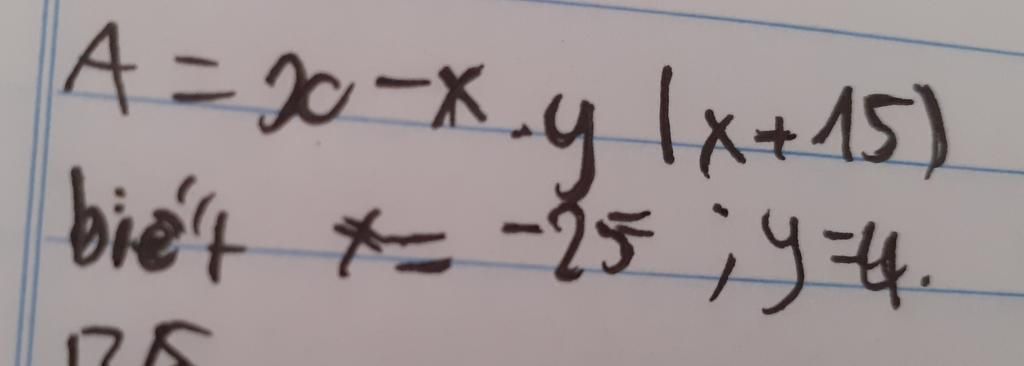 A = x - x . y (x + 15)
biết x = -25 ; y = 4.